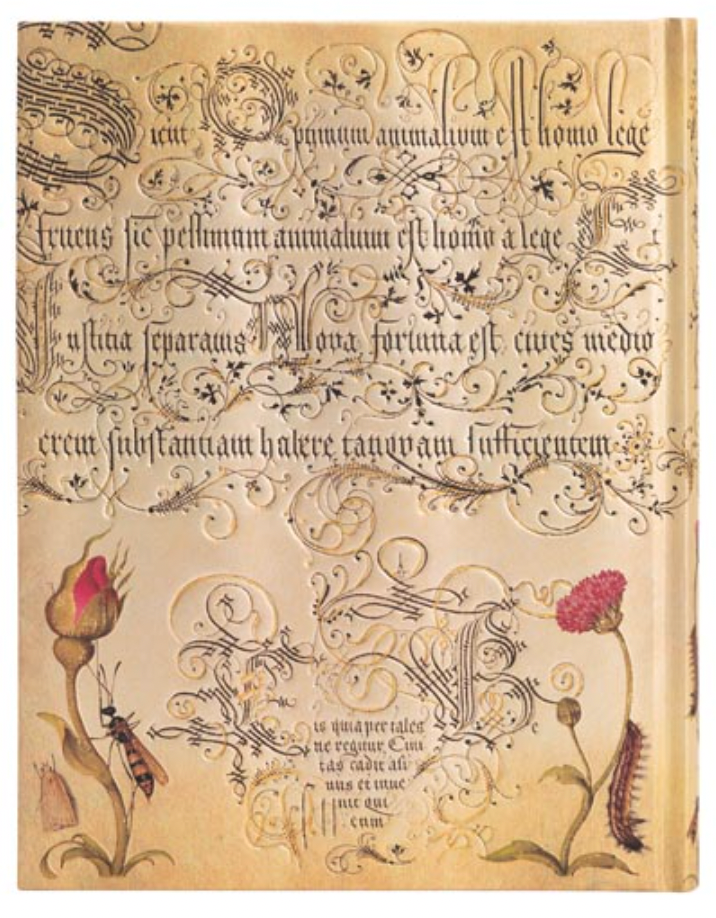 Sicut Optimum animalium est homo lege
fruens sic pessimum animalium est homo a lege Et
Iustitia separatus Nova fortuna est cives medio
crem substantiam habere tanqvam sufficientem
is quia per tales Be
ne regitur Civi
tas cadit asi
nus et inve
nit qui
eum